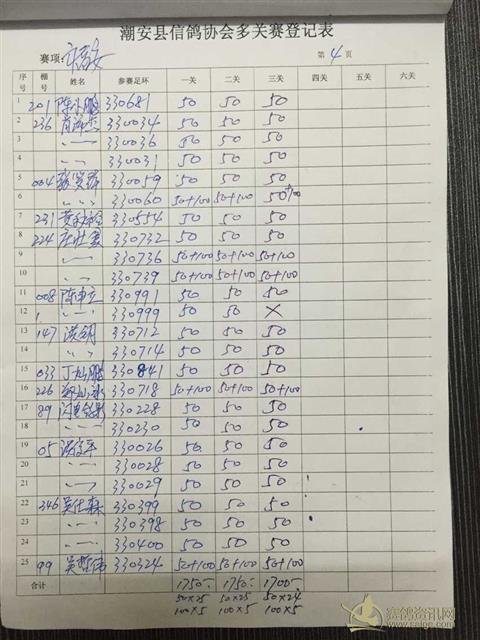 潮安县信鸽协会多关赛登记表
赛项: 第 4 页
序号 棚号 姓名 参赛足环 一关 二关 三关 四关 五关 六关
1 201 陈小鹏 330681 50 50 50
2 236 330034 50 50 50
3 〃 330036 50 50 50
4 〃 330031 50 50 50
5 004 330059 50 50 50
6 〃 330060 50+100 50+100 50+100
7 231 330554 50 50 50
8 224 330732 50 50 50
9 〃 330736 50+100 50+100 50+100
10 〃 330739 50+100 50+100 50+100
11 008 330991 50 50 50
12 〃 330999 50 50 ×
13 147 330712 50 50 50
14 〃 330714 50 50 50
15 033 330841 50 50 50
16 226 330718 50+100 50+100 50+100
17 89 330228 50 50 50
18 〃 330230 50 50 50
19 05 330026 50 50 50
20 〃 330028 50 50 50
21 〃 330029 50 50 50
22 346 吴仕森 330399 50 50 50
23 〃 330398 50 50 50
24 〃 330400 50 50 50
25 99 吴哲伟 330324 50+100 50+100 50+100
合计 1750- 1750- 1700-
50×25 50×25 50×24
100×5 100×5 100×5
赛鸽资讯网
www.saige.com